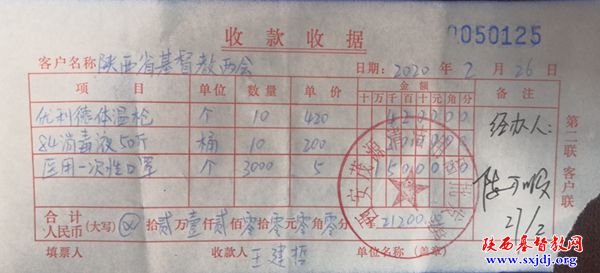 收款收据
0050125
客户名称 陕西省基督教两会 日期：2020年2月26日
项目 单位 数量 单价 金额 备注
十万千百十元角分
优利德体温枪 个 10 420 420000
84消毒液50斤 桶 10 200
医用一次性口罩 个 3000 5
经办人：
27/2
合计
人民币（大写）⊗拾贰万壹仟贰佰零拾零元零角零分 ¥21200.00
填票人 收款人 王建哲 单位名称（盖章）
第二联 客户联
陕西基督教网
www.sxjdj.org